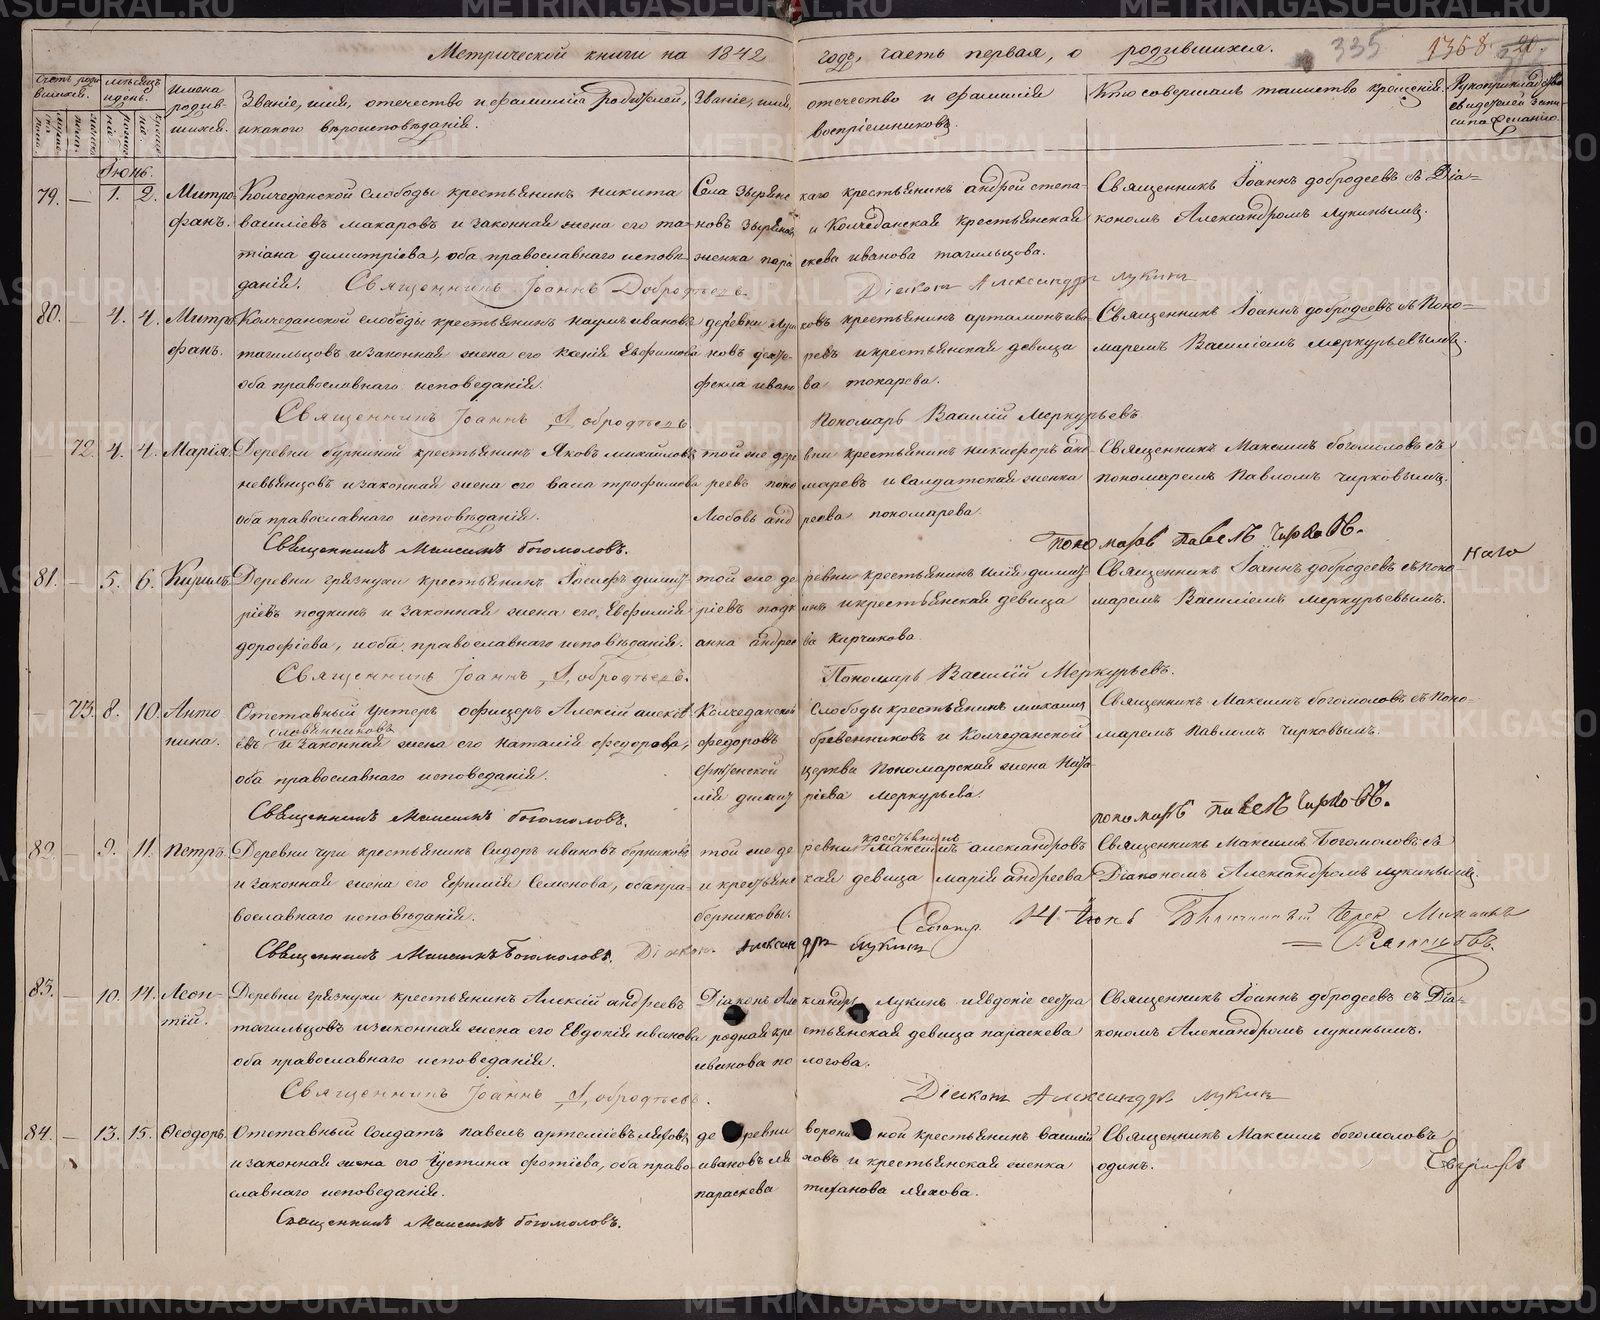 Метрической книги на 1842 годъ, часть первая, о родившихся.
335 1368
Счетъ родившихся.
мѣсяцъ и день.
Имена родившихся.
Званіе, имя, отечество и фамилія родителей, и какого вѣроисповѣданія.
Званіе, имя, отечество и фамилія воспріемниковъ.
Кто совершалъ таинство крещенія.
Рукоприкладство свидѣтелей записи по желанію.
Іюнь.
79. — 1. 2. Митрофанъ.
Колчеданской слободы крестьянинъ никита
василіевъ макаровъ и законная жена его та-
тіана димитріева, оба православнаго исповѣ-
данія.
Села Зырянскаго крестьянинъ андрей степа-
новъ Зыряновъ и Колчеданская крестьянская
женка параскева иванова тагильцова.
Священникъ Іоаннъ добродеевъ съ Діа-
кономъ Александромъ лукинымъ.
Священникъ Іоаннъ Добродѣевъ Діаконъ Александръ лукинъ
80. — 4. 4. Митрофанъ.
Колчеданской слободы крестьянинъ наумъ ивановъ
тагильцовъ и законная жена его Ксенія Евфимова
оба православнаго исповеданія.
крестьянинъ артамонъ
и крестьянская девица
фекла иванова токарева.
Священникъ Іоаннъ добродеевъ съ Поно-
маремъ Василіемъ меркурьевымъ.
Священникъ Іоаннъ Добродѣевъ Пономарь Василій Меркурьевъ
— 72. 4. 4. Марія.
Деревни крестьянинъ Яковъ михайловъ
невьянцовъ и законная жена его васа трофимова
оба православнаго исповѣданія.
той же деревни крестьянинъ никифоръ анд-
реевъ пономаревъ и Салдатская женка
Любовь андреева пономарева
Священникъ Максимъ богомоловъ съ
пономаремъ Павломъ чирковымъ.
Священникъ Максимъ богомоловъ. пономарь павелъ чирковъ.
81. — 5. 6. Кирилъ.
Деревни грязнухи крестьянинъ Іосифъ димит-
ріевъ подкинъ и законная жена его, Евфимія
дорофіева, и оба православнаго исповѣданія.
той же деревни крестьянинъ илія димит-
ріевъ подкинъ и крестьянская девица
анна андреева Кирчикова
Священникъ Іоаннъ добродеевъ съ поно-
маремъ Василіемъ меркурьевымъ.
Священникъ Іоаннъ Добродѣевъ. Пономарь Василій Меркурьевъ.
— 73. 8. 10. Антонина.
Отставный Унтеръ офицеръ Алексій алексѣ-
евъ и законная жена его наталія федорова,
оба православнаго исповеданія.
Колчеданской Слободы крестьянинъ михаилъ
федоровъ бревенниковъ и Колчеданской
Срѣтенской церкви Пономарская жена Ната-
лія димитріева меркурьева.
Священникъ Максимъ богомоловъ съ поно-
маремъ Павломъ чирковымъ.
Священникъ Максимъ богомоловъ. пономарь павелъ чирковъ.
82. — 9. 11. Петръ.
Деревни чуги крестьянинъ Сидоръ ивановъ берниковъ
и законная жена его Ефимія Семенова, оба пра-
вославнаго исповѣданія.
той же деревни крестьянинъ Максимъ александровъ
и крестьянская девица марія андреева
берниковы.
Священникъ Максимъ Богомоловъ съ
Діакономъ Александромъ лукинымъ.
14 Іюня
Священникъ Максимъ Богомоловъ. Діаконъ Александръ Лукинъ
83. — 10. 14. Леонтій.
Деревни грязнухи крестьянинъ Алексій андреевъ
тагильцовъ и законная жена его Евдокія иванова
оба православнаго исповеданія.
Діаконъ Александръ лукинъ и Евдокіе сестра
родная крестьянская девица параскева
иванова пологова.
Священникъ Іоаннъ добродеевъ съ Діа-
кономъ Александромъ лукинымъ.
Священникъ Іоаннъ Добродѣевъ. Діаконъ Александръ лукинъ
84. — 13. 15. Ѳеодоръ.
Отставный Солдатъ павелъ артеміевъ ляховъ
и законная жена его Іустина фотіева, оба право-
славнаго исповеданія.
деревни крестьянинъ василій
ивановъ ляховъ и крестьянская женка
параскева тиханова ляхова.
Священникъ Максимъ богомоловъ
одинъ.
Священникъ Максимъ богомоловъ.
METRIKI.GASO-URAL.RU